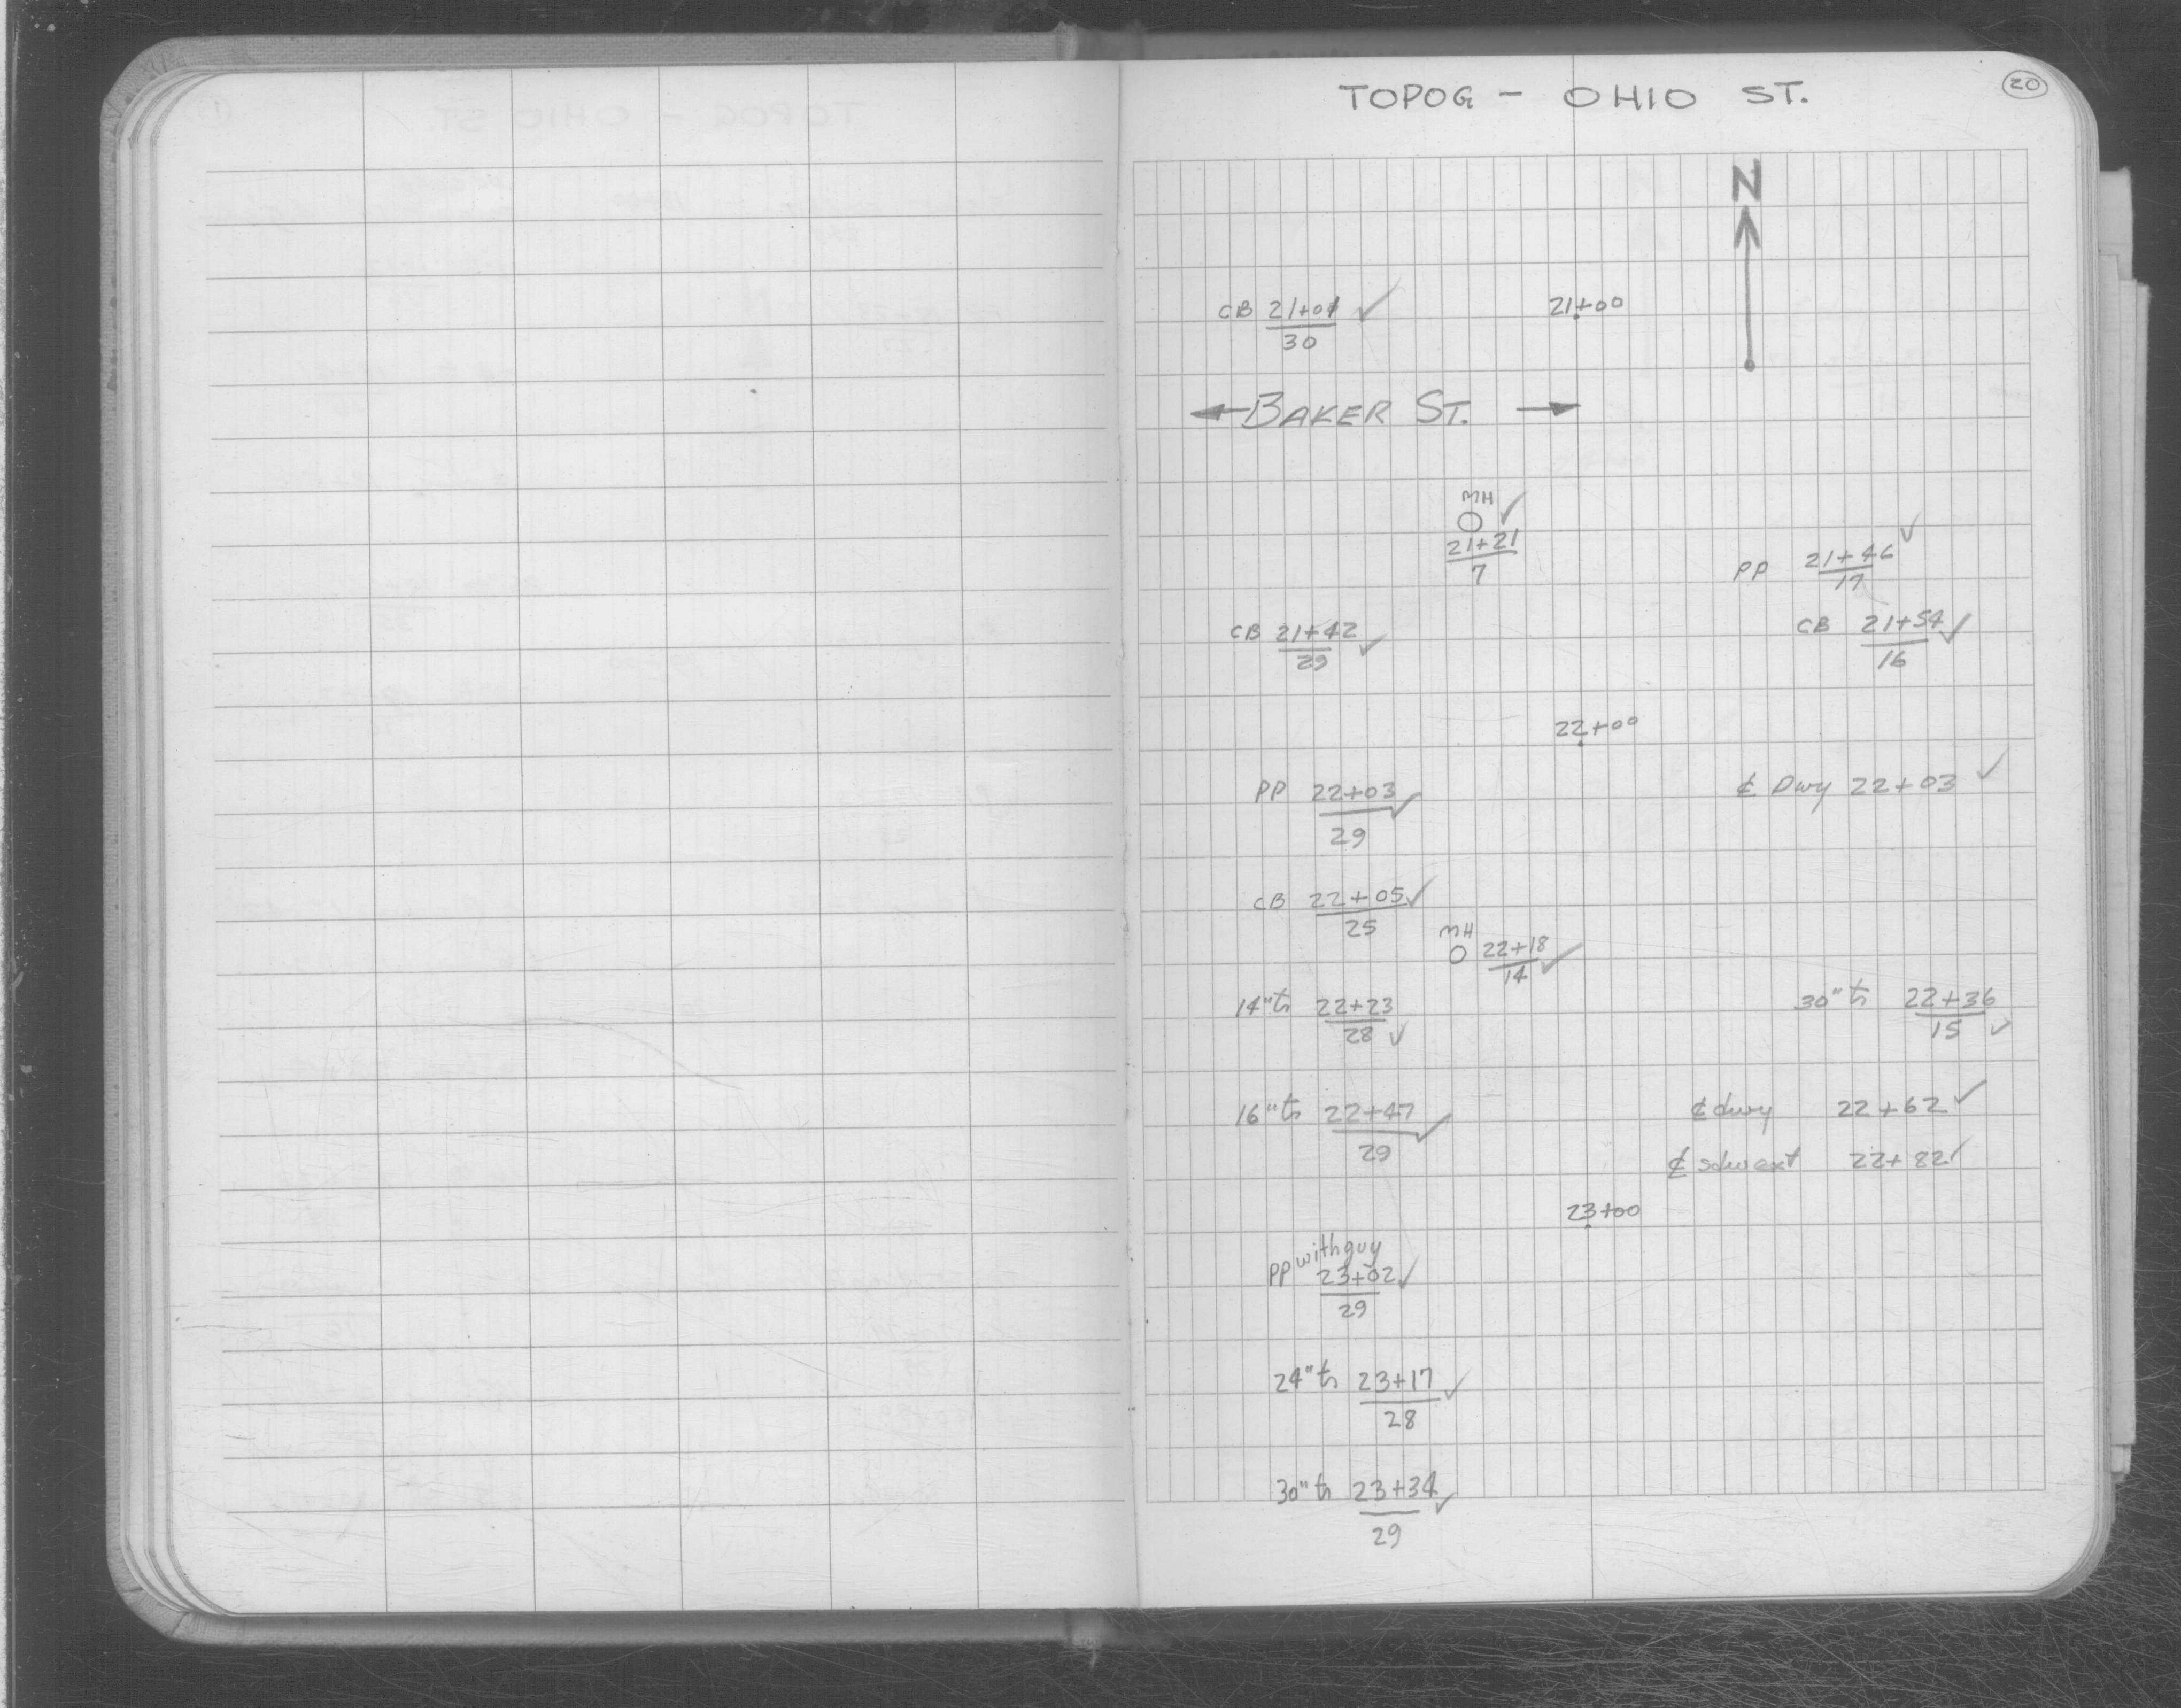 TOPOG - OHIO ST.
20
N
CB 21+01
30
21+00
BAKER ST.
MH
21+21
7
PP 21+46
17
CB 21+42
29
CB 21+54
16
22+00
PP 22+03
29
℄ Dwy 22+03
CB 22+05
25
MH
22+18
14
14" tr 22+23
28
30" tr 22+36
15
16" tr 22+47
29
℄ dwy 22+62
℄ sdw ext 22+82
23+00
PP with guy
23+02
29
24" tr 23+17
28
30" tr 23+34
29